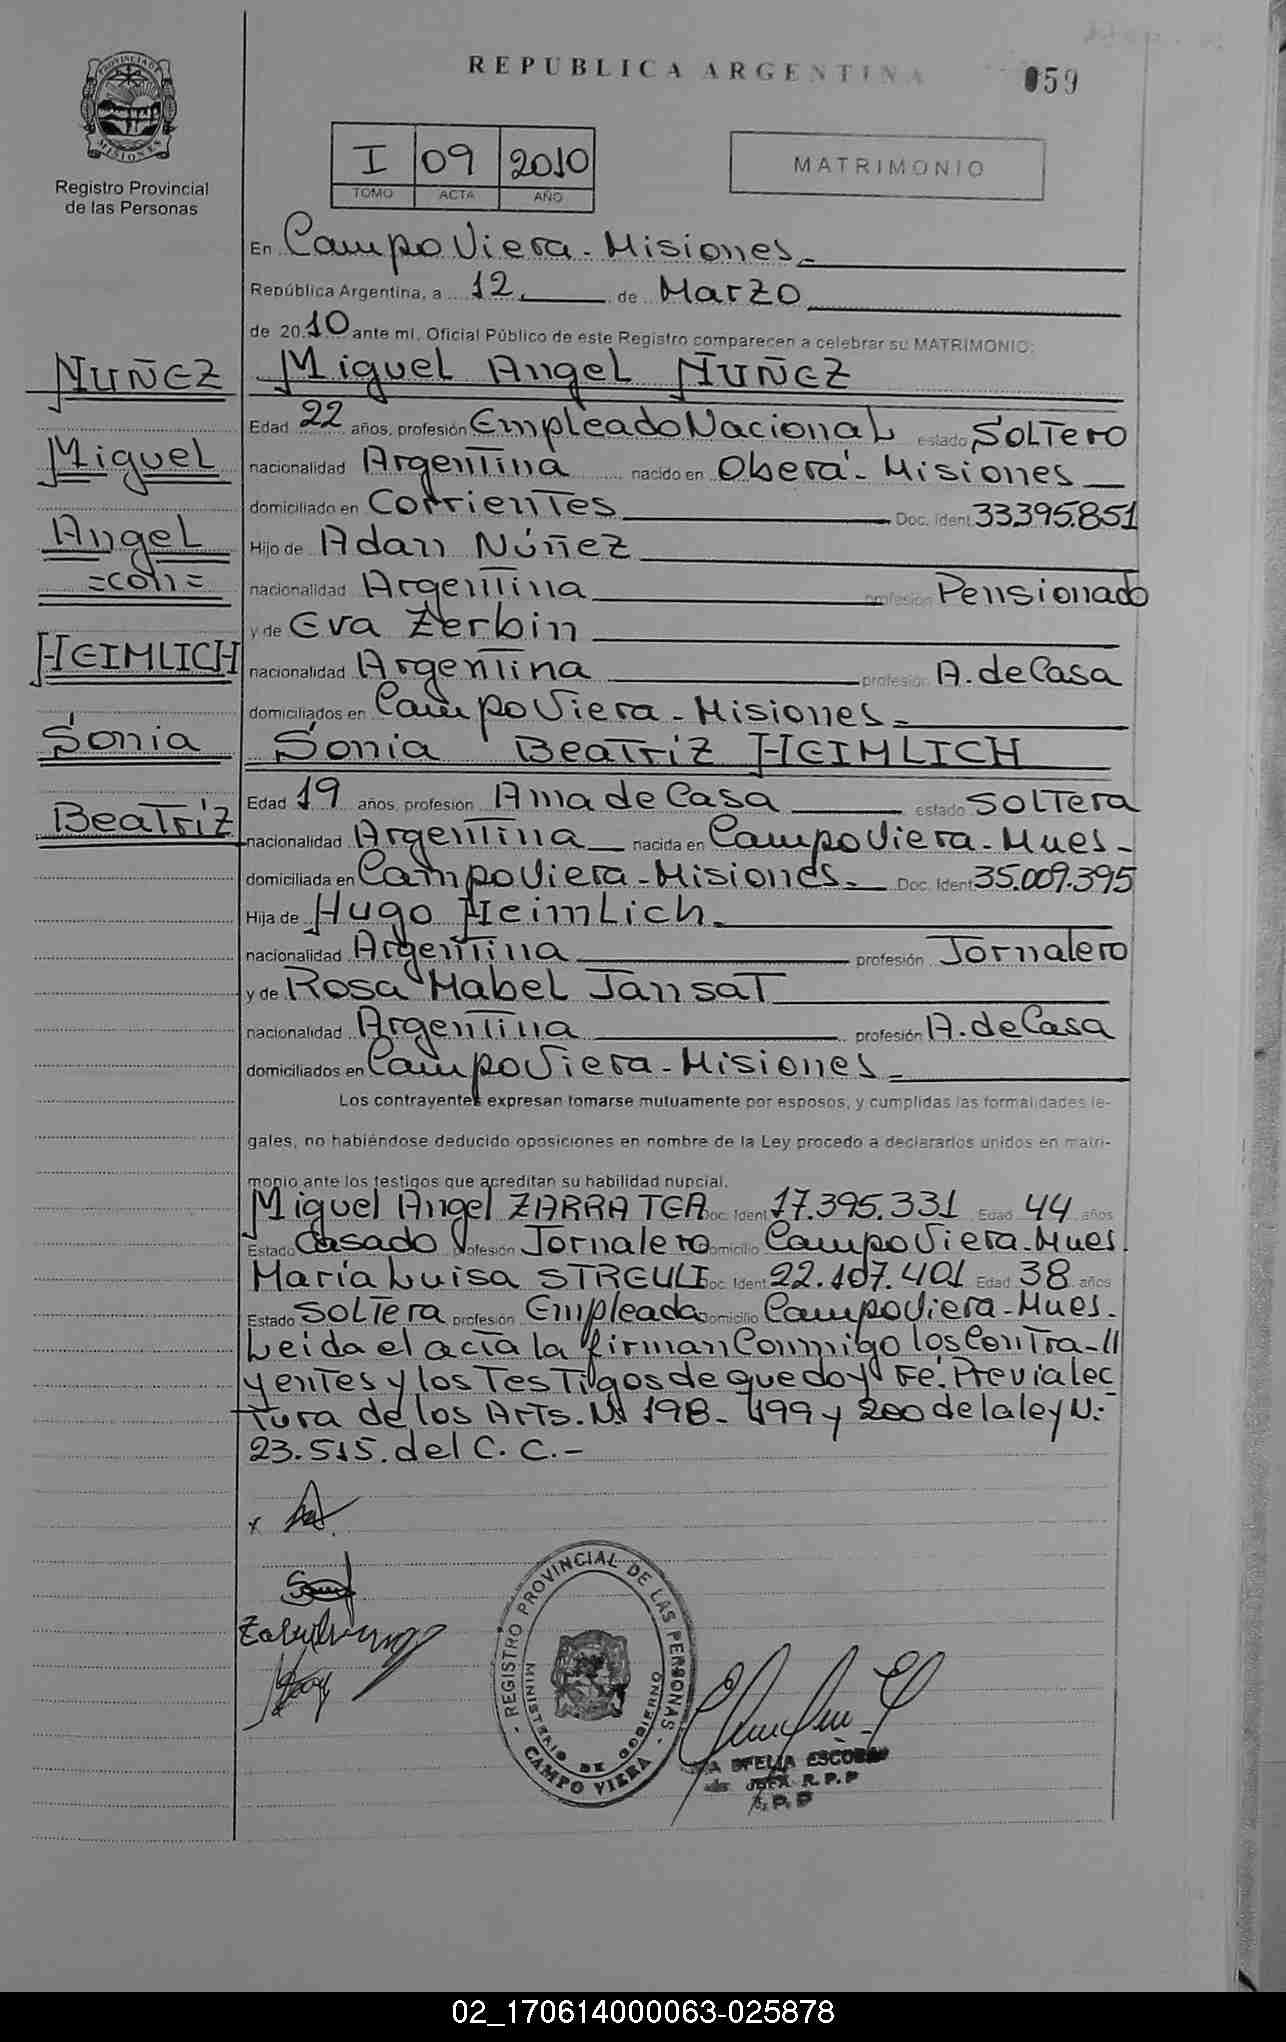 REPUBLICA ARGENTINA
059
PROVINCIA DE MISIONES
Registro Provincial
de las Personas
I 09 2010
TOMO ACTA AÑO
MATRIMONIO
En Campo Viera - Misiones -
República Argentina, a 12 de Marzo
de 2010 ante mí, Oficial Público de este Registro comparecen a celebrar su MATRIMONIO:
NUÑEZ
Miguel
Angel
=con=
HEIMLICH
Sonia
Beatriz
Miguel Angel NUÑEZ
Edad 22 años, profesión Empleado Nacional estado Soltero
nacionalidad Argentina nacido en Oberá - Misiones
domiciliado en Corrientes Doc. Ident. 33.395.851
Hijo de Adan Núñez
nacionalidad Argentina profesión Pensionado
y de Eva Zerbin
nacionalidad Argentina profesión A. de Casa
domiciliados en Campo Viera - Misiones -
Sonia Beatriz HEIMLICH
Edad 19 años, profesión Ama de Casa estado Soltera
nacionalidad Argentina nacida en Campo Viera - Mnes -
domiciliada en Campo Viera - Misiones - Doc. Ident. 35.009.395
Hija de Hugo Heimlich
nacionalidad Argentina profesión Jornalero
y de Rosa Mabel Jansat
nacionalidad Argentina profesión A. de Casa
domiciliados en Campo Viera - Misiones -
Los contrayentes expresan tomarse mutuamente por esposos, y cumplidas las formalidades le-
gales, no habiéndose deducido oposiciones en nombre de la Ley procedo a declararlos unidos en matri-
monio ante los testigos que acreditan su habilidad nupcial.
Miguel Angel ZARRATEA Doc. Ident. 17.395.331 Edad 44 años
Estado Casado profesión Jornalero Domicilio Campo Viera - Mnes.
María Luisa STREULI Doc. Ident. 22.107.401 Edad 38 años
Estado Soltera profesión Empleada Domicilio Campo Viera - Mnes -
Leida el acta la firman Conmigo los Contra-//
yentes y los Testigos de que doy Fe. Previa lec
tura de los Arts. N: 198 - 199 y 200 de la ley N:-
23.515. del C. C.-
x
REGISTRO PROVINCIAL DE LAS PERSONAS
MINISTERIO DE GOBIERNO
CAMPO VIERA
OFELIA ESCOBAR
JEFA R.P.P
02_170614000063-025878